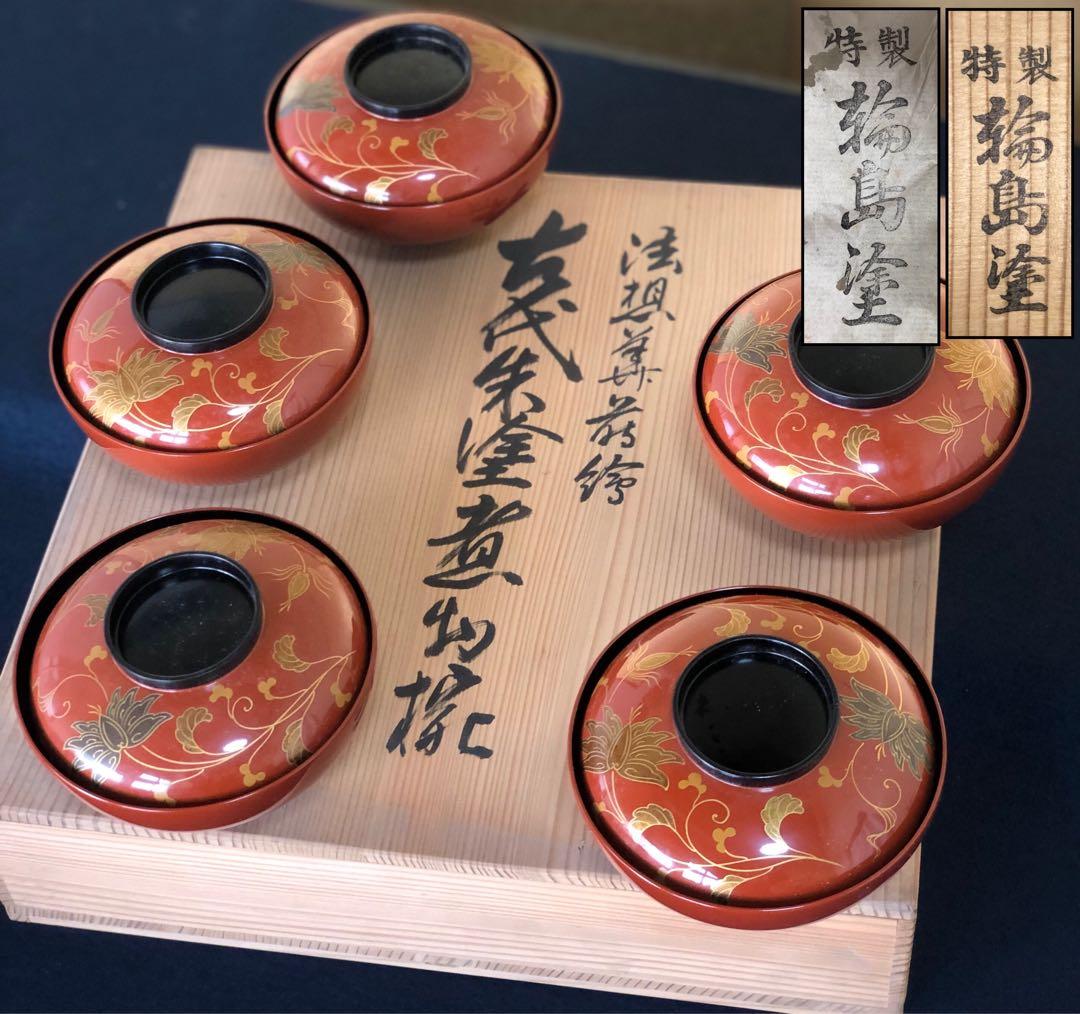 法想華蒔繪
古代朱塗煮物椀
特製
輪島塗
特製
輪島塗